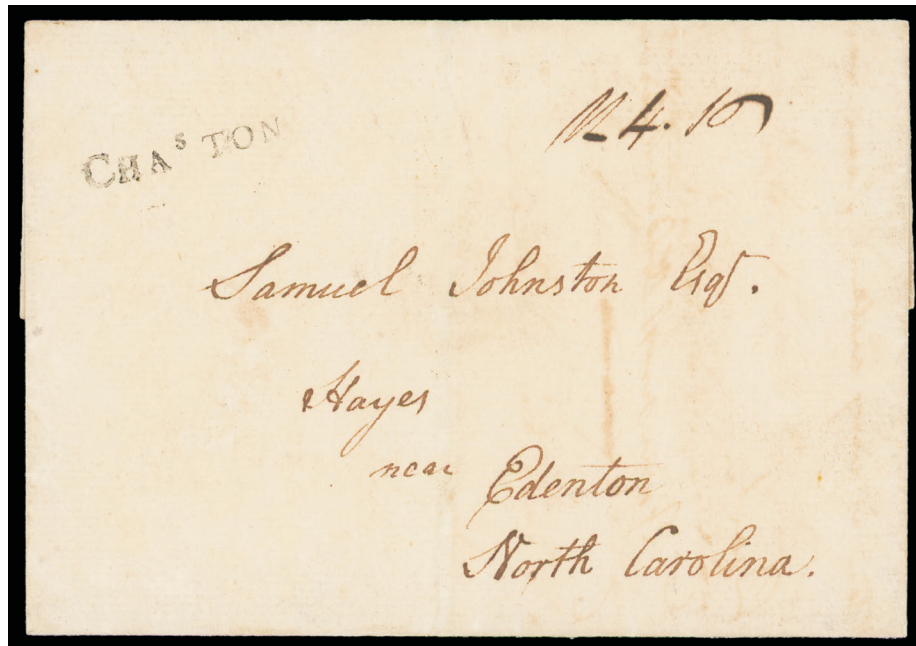 CHAˢ TON
4.16
Samuel Johnston Esqr.
Hayes
near Edenton
North Carolina.